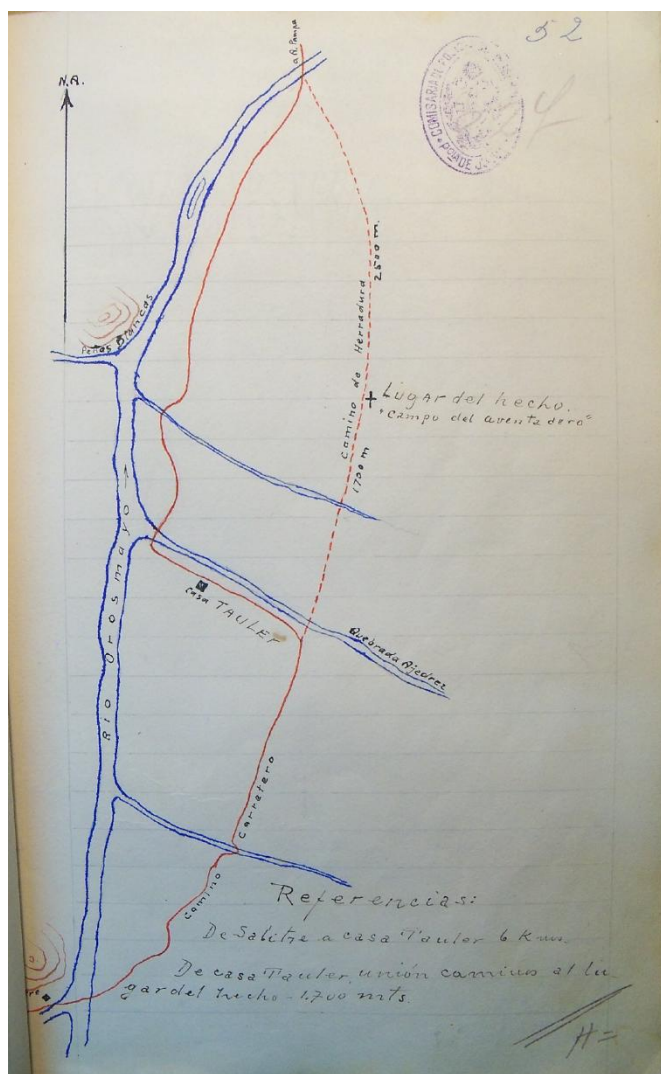 52
a R. Pampa
N.A.
COMISARIA DE POLICIA
PCIA DE JUJUY
Peñas Blancas
2500 m.
Camino de Herradura
1700 m
Lugar del hecho.
"campo del aventadero"
RIO Orosmayo
casa TAULER
Quebrada Ajedrez
Carretero
camino
Referencias:
De Salitre a casa Tauler 6 Kms.
De casa Tauler, unión caminos al lu
gar del hecho - 1.700 mts.